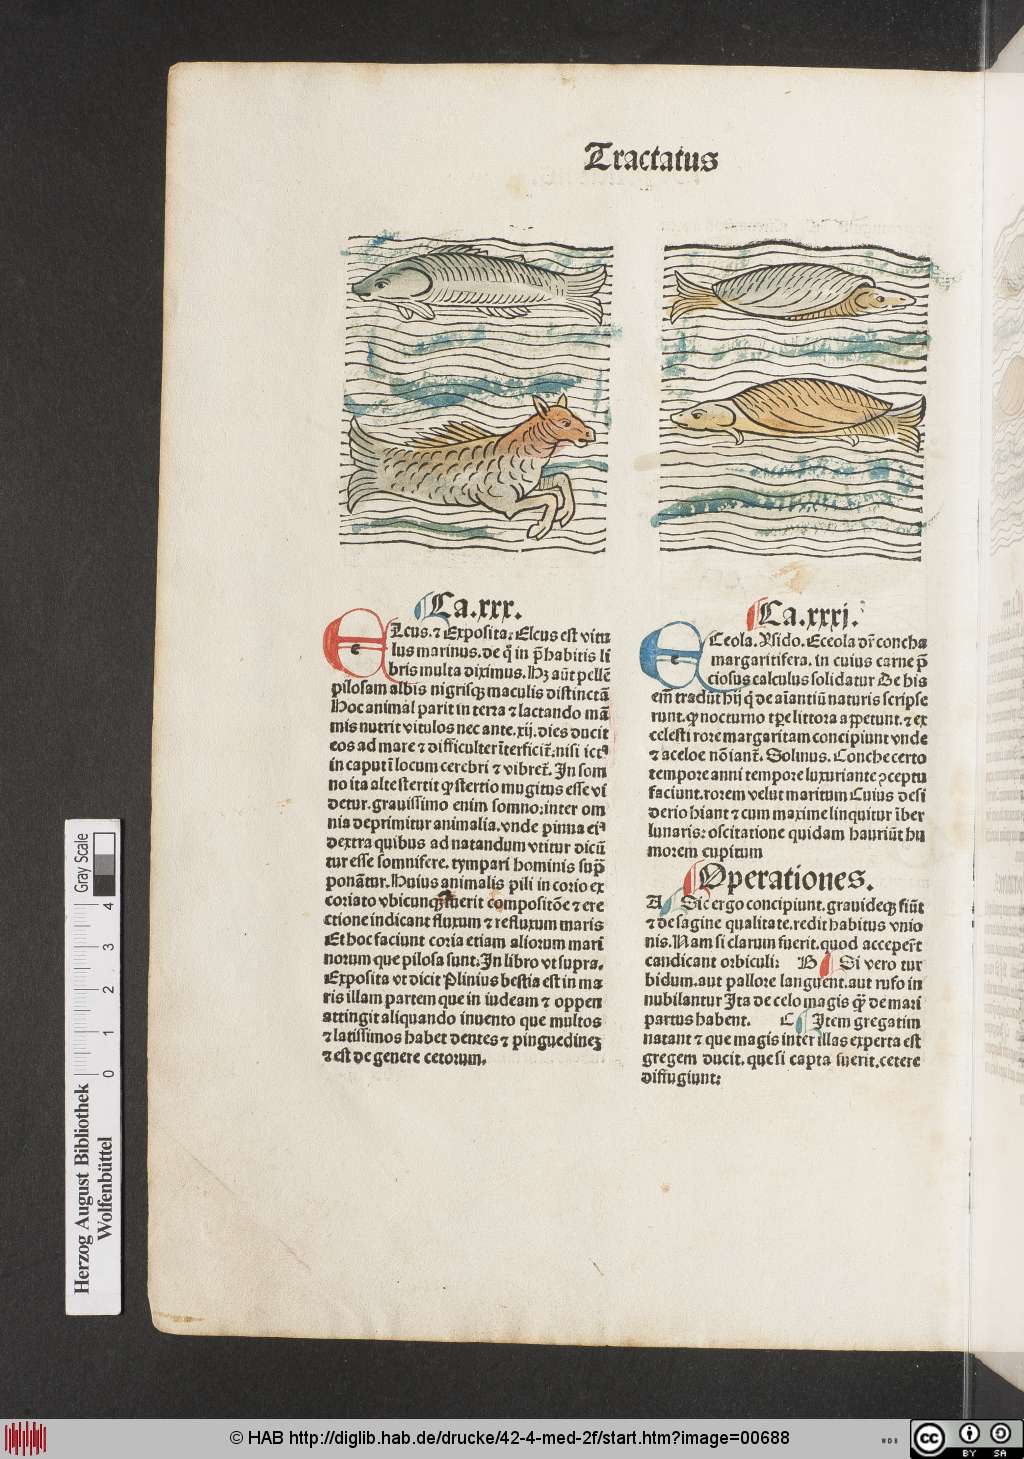 Tractatus
Ca.xxx.
ELcus.⁊ Exposita: Elcus est vitu
lus marinus.de q̊ in p̄habitis li
bris multa diximus. Hȝ aūt pellē
pilosam albis nigrisqȝ maculis distinctā
Hoc animal parit in terra ⁊ lactando mā
mis nutrit vitulos nec ante.xij.dies ducit
eos ad mare ⁊ difficulter īterficit̄:nisi ict᷒
in caput ī locum cerebri ⁊ vibret̄. In som
no ita alte stertit ꝙ stertio mugitus esse vi
detur.grauissimo enim somno:inter om
nia deprimitur animalia.vnde pinna ei᷒
dextra quibus ad natandum vtitur dicū
tur esse somnifere.tympari hominis sup̄
ponātur.Huius animalis pili in corio ex
coriato vbicunqȝ fuerit compositōe ⁊ ere
ctione indicant fluxum ⁊ refluxum maris
Et hoc faciunt coria etiam aliorum mari
norum que pilosa sunt:In libro vt supra.
Exposita vt dicit Plinius bestia est in ma
ris illam partem que in iudeam ⁊ oppen
attingit aliquando inuento que multos
⁊ latissimos habet dentes ⁊ pinguedineȝ
⁊ est de genere cetorum.
Ca.xxxj.
ECeola. Ysido. Eceola dr̄ concha
margaritifera.in cuius carne p̄
ciosus calculus solidatur De his
em̄ tradūt hij q̇ de aīantiū naturis scripse
runt.ꝙ nocturno tp̄e littora appetunt.⁊ ex
celesti rore margaritam concipiunt vnde
⁊ aceloe nōiant̄. Solinus. Conche certo
tempore anni tempore luxuriante ꝯceptu
faciunt.rorem velut maritum Cuius desi
derio hiant ⁊ cum maxime linquitur īber
lunaris: oscitatione quidam hauriūt hu
morem cupitum
Operationes.
A Sic ergo concipiunt.grauideqȝ fiūt
⁊ de sagine qualitate.redit habitus vnio
nis.Nam si clarum fuerit.quod acceper̄t
candicant orbiculi: B Si vero tur
bidum.aut pallore languent.aut rufo in
nubilantur Ita de celo magis q̄ȝ de mari
partus habent. C Item gregatim
natant ⁊ que magis inter illas experta est
gregem ducit.que si capta fuerit.cetere
diffugiunt:
Gray Scale
0 1 2 3 4
Herzog August Bibliothek
Wolfenbüttel
© HAB http://diglib.hab.de/drucke/42-4-med-2f/start.htm?image=00688
WDB
cc BY SA